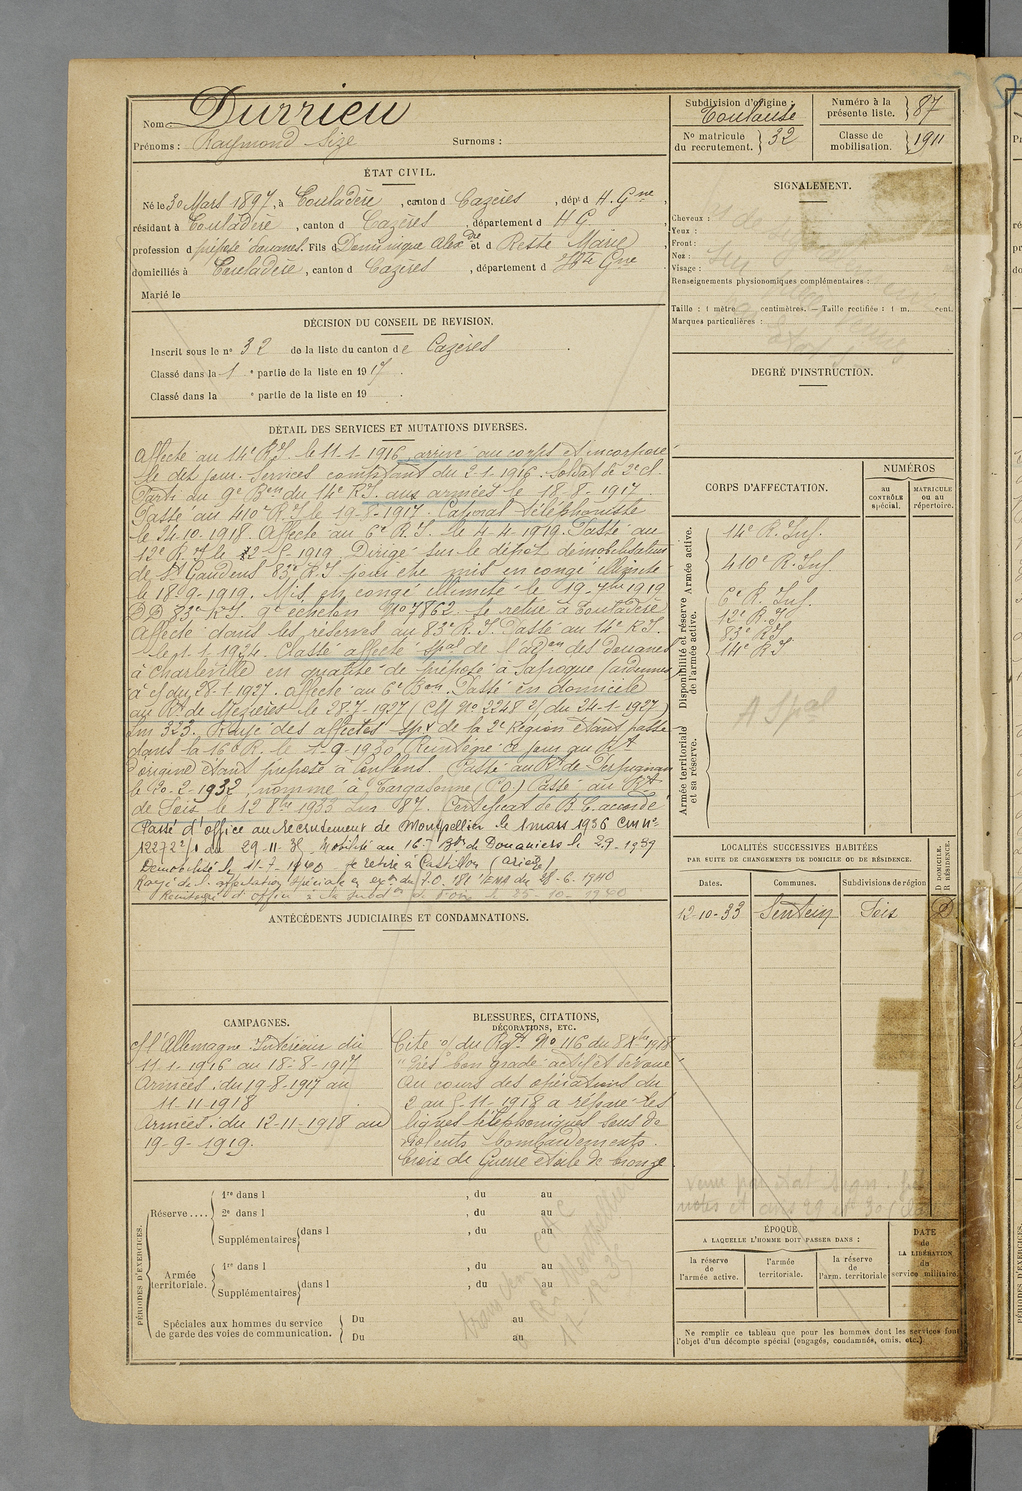 Nom : Durrieu
Prénoms : Raymond Size Surnoms :
ÉTAT CIVIL.
Né le 30 Mars 1897, à Couladère, canton d Cazères, dépt d H. Gne,
résidant à Couladère, canton d Cazères, département d H G
profession d préposé douanes. Fils d Dominique Alexdre et d Reste Marie
domiciliés à Couladère, canton d Cazères, département d Hte Gne
Marié le
DÉCISION DU CONSEIL DE REVISION.
Inscrit sous le n° 32 de la liste du canton de Cazères
Classé dans la 1 e partie de la liste en 1917.
Classé dans la e partie de la liste en 19
DÉTAIL DES SERVICES ET MUTATIONS DIVERSES.
Affecté au 14e R.I. le 11-1-1916, arrivé au corps et incorporé
le dit jour. Services comptant du 2-1-1916. Soldat de 2e cl.
Parti du 9e Bon du 14e R.I. aux armées le 18-8-1917.
Passé au 410e R.I. le 19-8-1917. Caporal téléphoniste
le 24-10-1918. Affecté au 6e R.I. le 4-4-1919. Passé au
12e R.I. le 1919. Dirigé sur le dépôt démobilisateur
de St Gaudens 83e R.I. pour être mis en congé illimité
le 18-9-1919. Mis en congé illimité le 19-7bre 1919
DD 83e R.I. 9e échelon No 7862. Se retire à Couladère
Affecté dans les réserves au 83e R.I. Passé au 14e R.I.
le 1-1-1924. Classé affecté spal de l'adon des douanes
à Charleville en qualité de préposé à Tafroque
à c/ du 28-1-1927. Affecté au 6e Bon. Passé en domicile
au Rt de Mézières le 28-7-1927 (CM No 2248 2/ du 24-1-1927)
Lm 323. Rayé des affectés spx de la 2e Région étant passé
dans la 16e R. le 1-9-1930. Réintégré ce jour au Rt
d'origine étant préposé à Conflens. Passé au Rt de Perpignan
le 20-2-1932, nommé à Targasonne (P.O.) Passé au Rt
de Foix le 12 8bre 1933 Lm 87. Certificat de B.C. accordé
Passé d'office au recrutement de Montpellier le 1 mars 1936 CM n°
12272 2/1 du 29-11-35. Mobilisé au 16e Bon de Douaniers le 2-9-1939
Démobilisé le 11-7-1940 se retire à Castillon (Ariège)
Rayé de l'affectation spéciale en exon du T.O. 181 1/EMA du 25-6-1940
Réintégré d'office à la subdon de Foix le 25-10-1940
ANTÉCÉDENTS JUDICIAIRES ET CONDAMNATIONS.
CAMPAGNES.
c/ l'Allemagne Intérieur du
11-1-1916 au 18-8-1917
Armées : du 19-8-1917 au
11-11-1918
Armées : du 12-11-1918 au
19-9-1919.
BLESSURES, CITATIONS,
DÉCORATIONS, ETC.
Cité o/ du Rgt No 116 du 8 1918
"Très bon gradé actif et dévoué
Au cours des opérations du
2 au 5-11-1918 a réparé les
lignes téléphoniques sous de
violents bombardements.
Croix de Guerre étoile de bronze.
PÉRIODES D'EXERCICES.
Réserve....
1re dans l , du au
2e dans l , du au
Supplémentaires dans l , du au
Armée territoriale.
1re dans l , du au
Supplémentaires dans l , du au
Spéciales aux hommes du service
de garde des voies de communication.
Du au
Du au
Montpellier
Subdivision d'origine :
Toulouse
Numéro à la
présente liste. 87
No matricule
du recrutement. 32
Classe de
mobilisation. 1911
SIGNALEMENT.
Cheveux :
Yeux :
Front :
Nez :
Visage :
Renseignements physionomiques complémentaires :
Taille : 1 mètre centimètres. — Taille rectifiée : 1 m. cent.
Marques particulières :
DEGRÉ D'INSTRUCTION.
CORPS D'AFFECTATION.
NUMÉROS
au
CONTRÔLE
spécial.
MATRICULE
ou au
répertoire.
Armée active.
14e R. Inf.
410e R. Inf
Disponibilité et réserve
de l'armée active.
6e R. Inf.
12e R.I.
83e R.I
14e R.I
A Spal
Armée territoriale
et sa réserve.
LOCALITÉS SUCCESSIVES HABITÉES
PAR SUITE DE CHANGEMENTS DE DOMICILE OU DE RÉSIDENCE.
Dates. Communes. Subdivisions de région
D DOMICILE.
R RÉSIDENCE.
12-10-33 Sentein Foix D
ÉPOQUE
A LAQUELLE L'HOMME DOIT PASSER DANS :
la réserve
de
l'armée active.
l'armée
territoriale.
la réserve
de
l'arm. territoriale
DATE
de
LA LIBÉRATION
du
service militaire.
Ne remplir ce tableau que pour les hommes dont les services font
l'objet d'un décompte spécial (engagés, condamnés, omis, etc.).